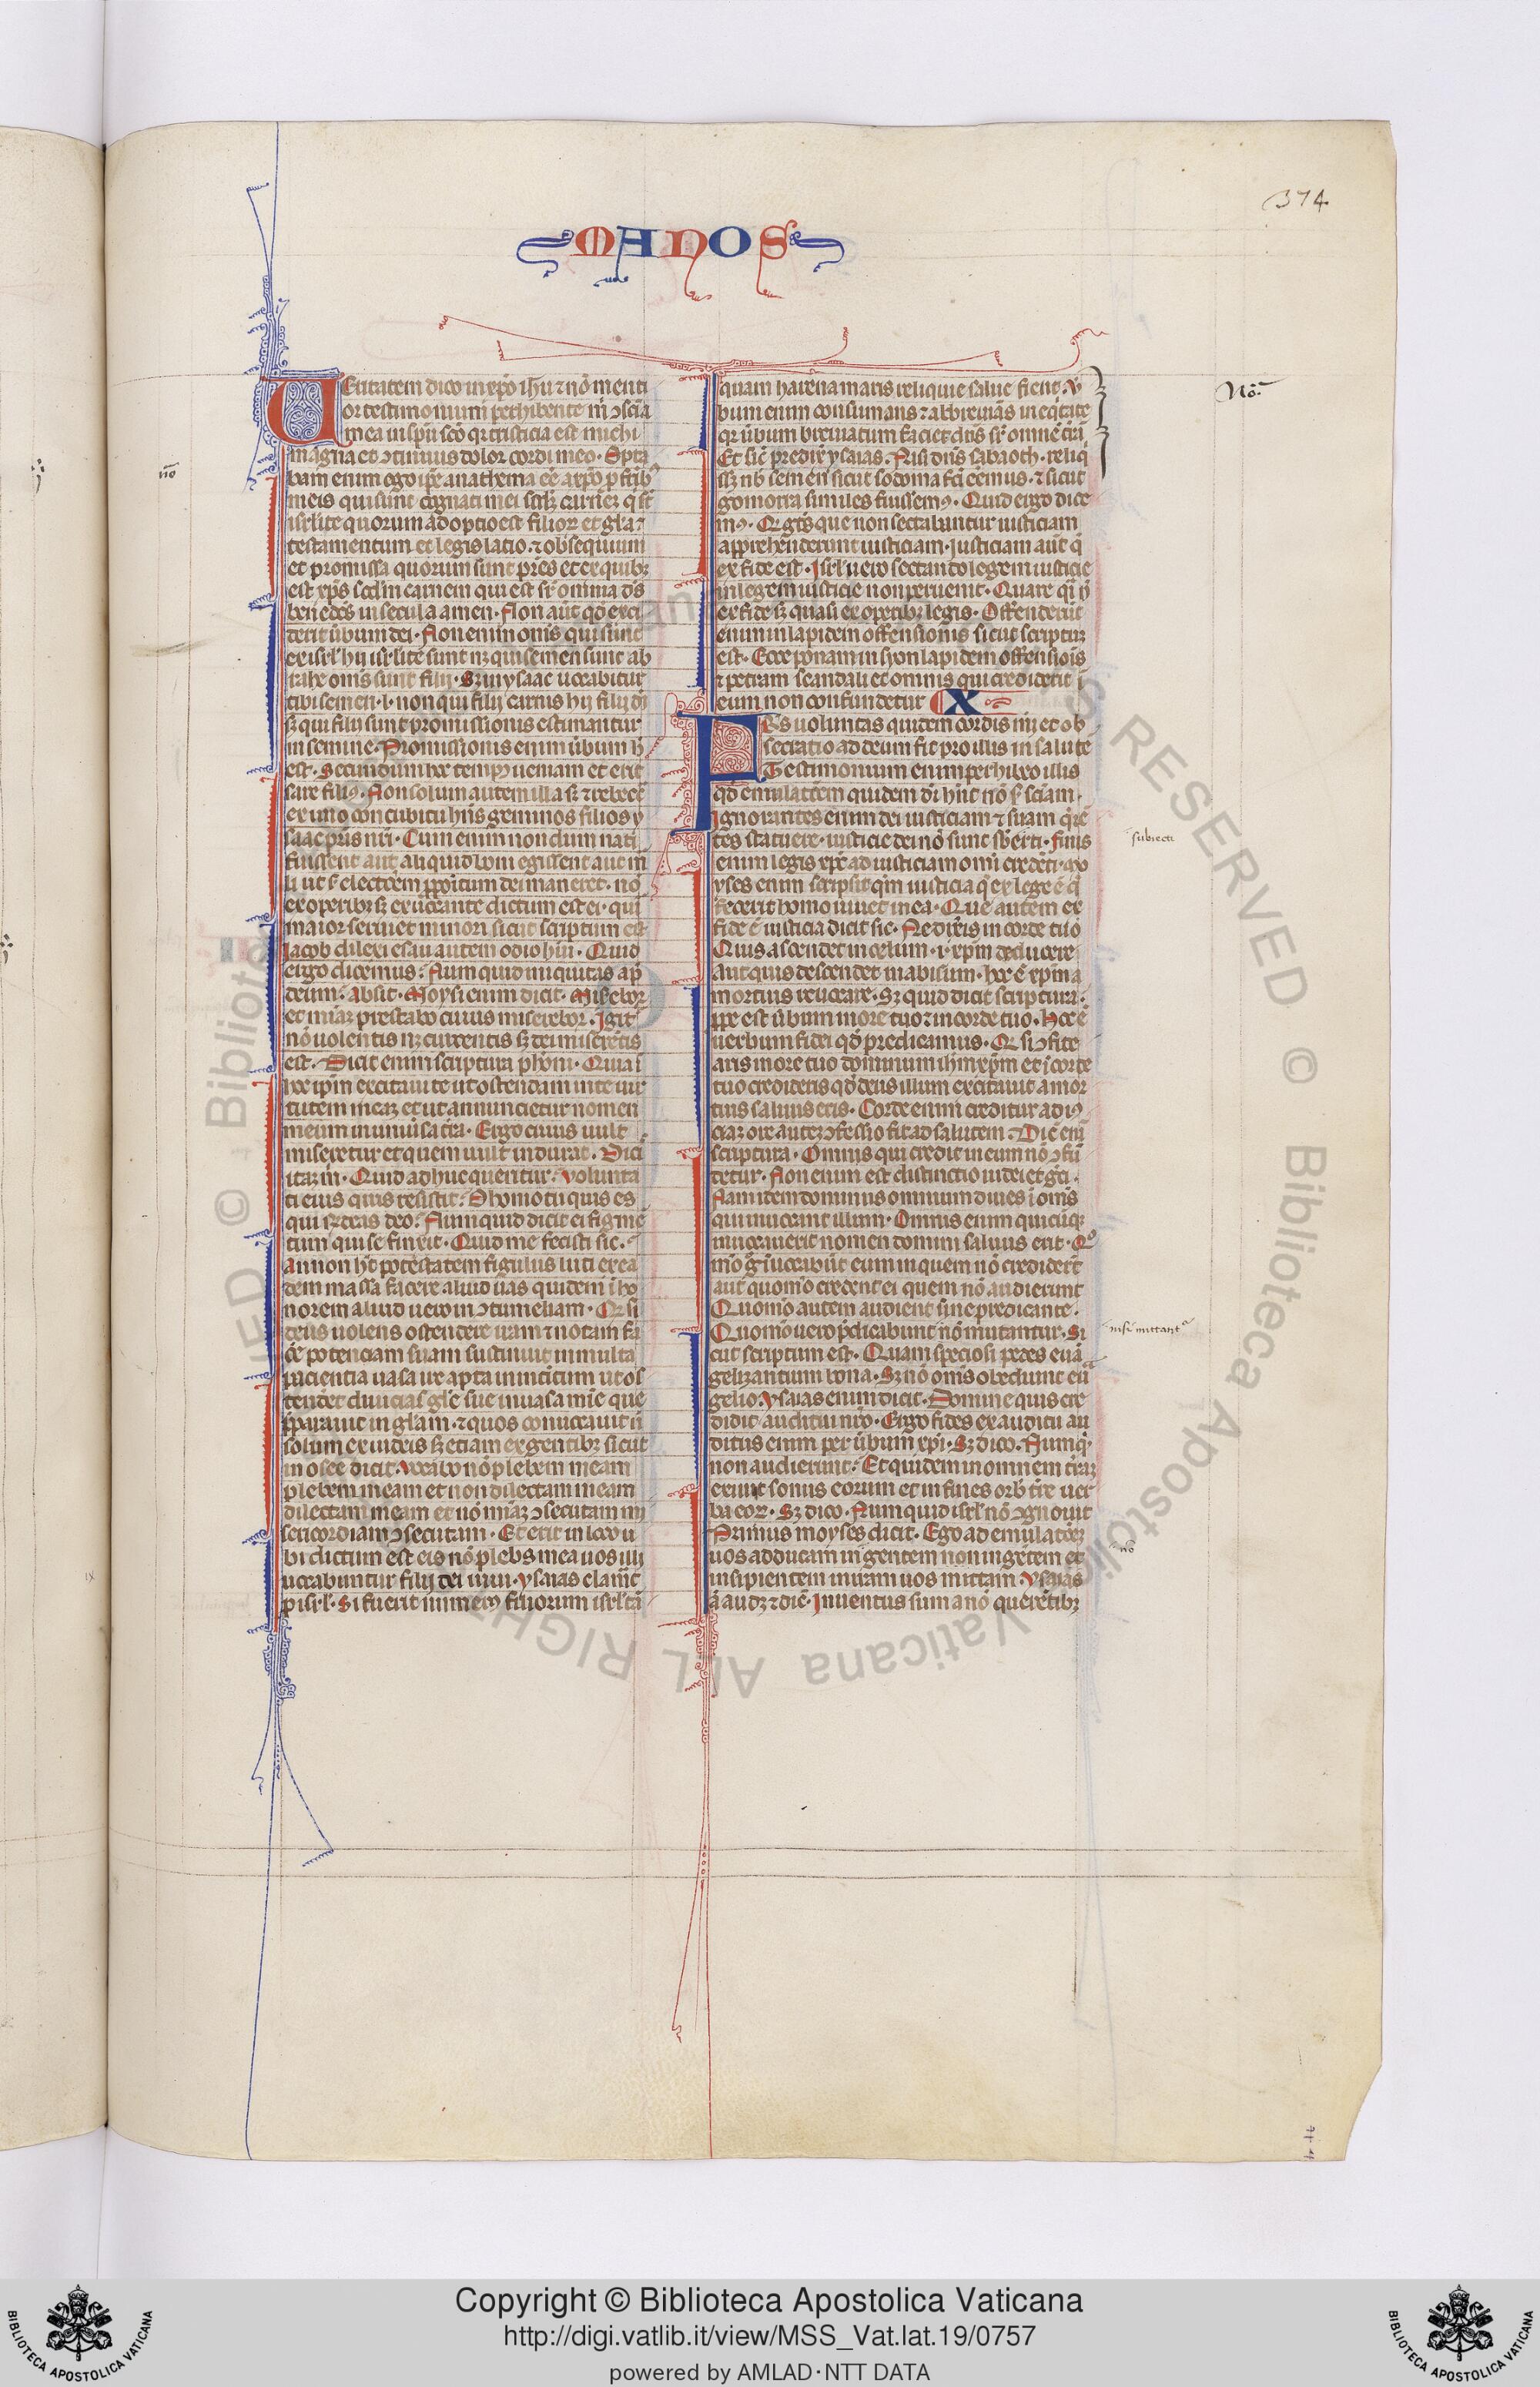 374
MANOS
Ueritatem dico in xp̄o ih̄u ⁊ nō menti
or testimonium perhibente m̄ ꝯsc̄ia
mea in sp̄u sc̄o qr tristicia est michi
magna et ꝯtinuus dolor cordi meo. Opta
nō
bam enim ego ip̄e anathema eē a xp̄o ꝓ fr̄ibꝫ
meis qui sunt cognati mei sc̄dꝫ carnē q̄ st̄
isrl̄ite quorum adoptio est filioꝝ et gl̄a ⁊
testamentum et legis latio ⁊ obsequium
et promissa quorum sunt pr̄es et ex quibꝫ
est xp̄s sc̄dm carnem qui est sr̄ omnia d̄s
benedc̄s in secula amen. Non aūt qd̄ exci
derit ūbum dei. Non enim om̄s qui sunt
ex isrl̄ hij isrl̄ite sunt nꝫ qui semen sunt ab
rahe om̄s sunt filij. Sꝫ in ysaac uocabitur
tibi semen .i. non qui filij carnis hij filij di
sꝫ qui filij sunt promissionis estimantur
in semine. Promissionis enim ūbum h̄
est. Secundum hoc tempꝰ ueniam et erit
sare filiꝰ. Non solum autem illa sꝫ ⁊ rebecc̄
ex uno concubitu hn̄s geminos filios y
saac pr̄is nr̄i. Cum enim nondum nati
fuissent aut aliquid boni egissent aut m̄
li ut s̄ electōem ꝓpōitum dei maneret. nō
ex operibꝫ sꝫ ex uocante dictum est ei. qui
maior seruiet minori sicut scriptum est
Jacob dilexi esau autem odio hūi. Quid
ergo dicemus. Numquid iniquitas ap̄
deum. Absit. Moysi enim dicit. Miserebor
et mīaꝫ prestabo cuius miserebor. Igit̄
nō uolentis nꝫ currentis sꝫ dei miserētis
est. Dicit enim scriptura pharōi. Quia ī
hoc ip̄m excitaui te ut ostendam in te uir
tutem meaꝫ et ut annuncietur nomen
meum in uniūsa tr̄a. Ergo cuius uult
miseretur et quem uult indurat. Dici
itaꝫ m̄. Quid adhuc queritur. Volunta
ti eius quis resistit. O homo tu quis es
qui rn̄deas deo. Numquid dicit ei figmē
tum qui se finxit. Quid me fecisti sic.
An non h̄t potestatem figulus luti ex ea
dem massa facere aliud uas quidem ī ho
norem aliud uero in ꝯtumeliam. Qr si
deus uolens ostendere iram ⁊ notam fa
c̄e potenciam suam sustinuit in multa
paciencia uasa ire apta in interitum ut os
tendēt diuicias gl̄e sue in uasa mīe que
p̄parauit in glām. ⁊ quos conuocauit n̄
solum ex iudeis sꝫ etiam ex gentibꝫ sicut
in osee dicit. Vocabo nō plebem meam
plebem meam et non dilectam meam
dilectam meam et nō mīaꝫ ꝯsecutam mi
sericordiam ꝯsecutam. Et erit in loco u
bi dictum est eis nō plebs mea uos illi
uocabuntur filij dei uiui. Ysaias clamāt
ꝓ isrl̄. Si fuerit numerꝰ filiorum isrl̄ tā
quam harena maris reliquie salue fient. V̄
Nō
bum enim consumans ⁊ abbreuiās in eq̄tate
qr ūbum breuiatum faciet dn̄s sr̄ omnē tr̄ā
Et sic̄ predix̄ ysaias. Nisi dn̄s sabaoth reliq̄
ssꝫ nb̄ semen sicut sodoma fc̄i eemus ⁊ sicut
gomorra similes fuissemꝰ. Quid ergo dice
mꝰ. Qr gn̄tes que non sectabantur iusticiam
apprehenderunt iusticiam. Iusticiam aūt q̄
ex fide est. Isrl̄ uero sectando legem iusticie
in legem iusticie non peruenit. Quare qr̄ n̄
ex fide sꝫ quasi ex operibꝫ legis. Offenderūt
enim in lapidem offensionis sicut scriptum
est. Ecce ponam in syon lapidem offensiōis
⁊ petram scandali et omnis qui crediderit ī
eum non confundetur X
FRs uoluntas quidem cordis mij et ob
secratio ad deum fit pro illis in salute
Testimonium enim perhibeo illis
qd̄ emulatōem quidem dī hn̄t nō s̄ sciam.
Ignorantes enim dei iusticiam ⁊ suam q̄rē
tes statuere. iusticie dei nō sunt sb̄iecti. Finis
subiecti
enim legis xp̄c ad iusticiam omī credēti. mo
yses enim scripsit qm̄ iusticia q̄ ex lege ē q̄
fecerit homo uiuet in ea. Que autem ex
fide ē iusticia dicit sic. Ne dixeris in corde tuo
Quis ascendet in celum .i. xp̄m deducere
Aut quis descendet in abissum. hoc ē xp̄m a
mortuis reuocare. Sꝫ quid dicit scriptura.
ꝓpe est ūbum in ore tuo ⁊ in corde tuo. Hoc ē
uerbum fidei qd̄ predicamus. Qr si ꝯfite
aris in ore tuo dominum ih̄m xp̄m et ī corde
tuo credideris qd̄ deus illum excitauit a mor
tuis saluus eris. Corde enim creditur ad iu
ciaꝫ ore auteꝫ ꝯfessio fit ad salutem. Dic̄ enī
scriptura. Omnis qui credit in eum nō ꝯfū
detur. Non enim est distinctio iudei et gc̄i.
Nam idem dominus omnium diues ī om̄s
qui inuocant illum. Omnis enim quicūqꝫ
inuocauerit nomen domini saluus erit. Qͦ
mō g̊ inuocabūt eum in quem nō crediderūt
aut quomō credent ei quem nō audierunt
Quomō autem audient sine predicante.
Quomō uero p̄dicabunt nō mittantur. Si
nisi mittantͬ
cut scriptum est. Quam speciosi pedes euā
gelizantium bona. Sꝫ nō om̄s obediunt euā
gelio. Ysaias enim dicit. Domine quis cre
didit auditui nr̄o. Ergo fides ex auditu au
ditus enim per ūbum xp̄i. Sꝫ dico. Numq̄
non audierunt. Et quidem in omnem tr̄aꝫ
exiuit sonus eorum et in fines orb̄ tr̄e uer
ba eoꝝ. Sꝫ dico. Numquid isrl̄ nō ꝯgnouit
Primus moyses dicit. Ego ad emulatōeꝫ
uos adducam in gentem non in gētem et
nō
insipientem in iram uos mittam. Ysaias
ā audꝫ ⁊ dic̄. Inuentus sum a nō querētibꝫ
Copyright © Biblioteca Apostolica Vaticana
http://digi.vatlib.it/view/MSS_Vat.lat.19/0757
powered by AMLAD·NTT DATA
BIBLIOTECA APOSTOLICA VATICANA
BIBLIOTECA APOSTOLICA VATICANA